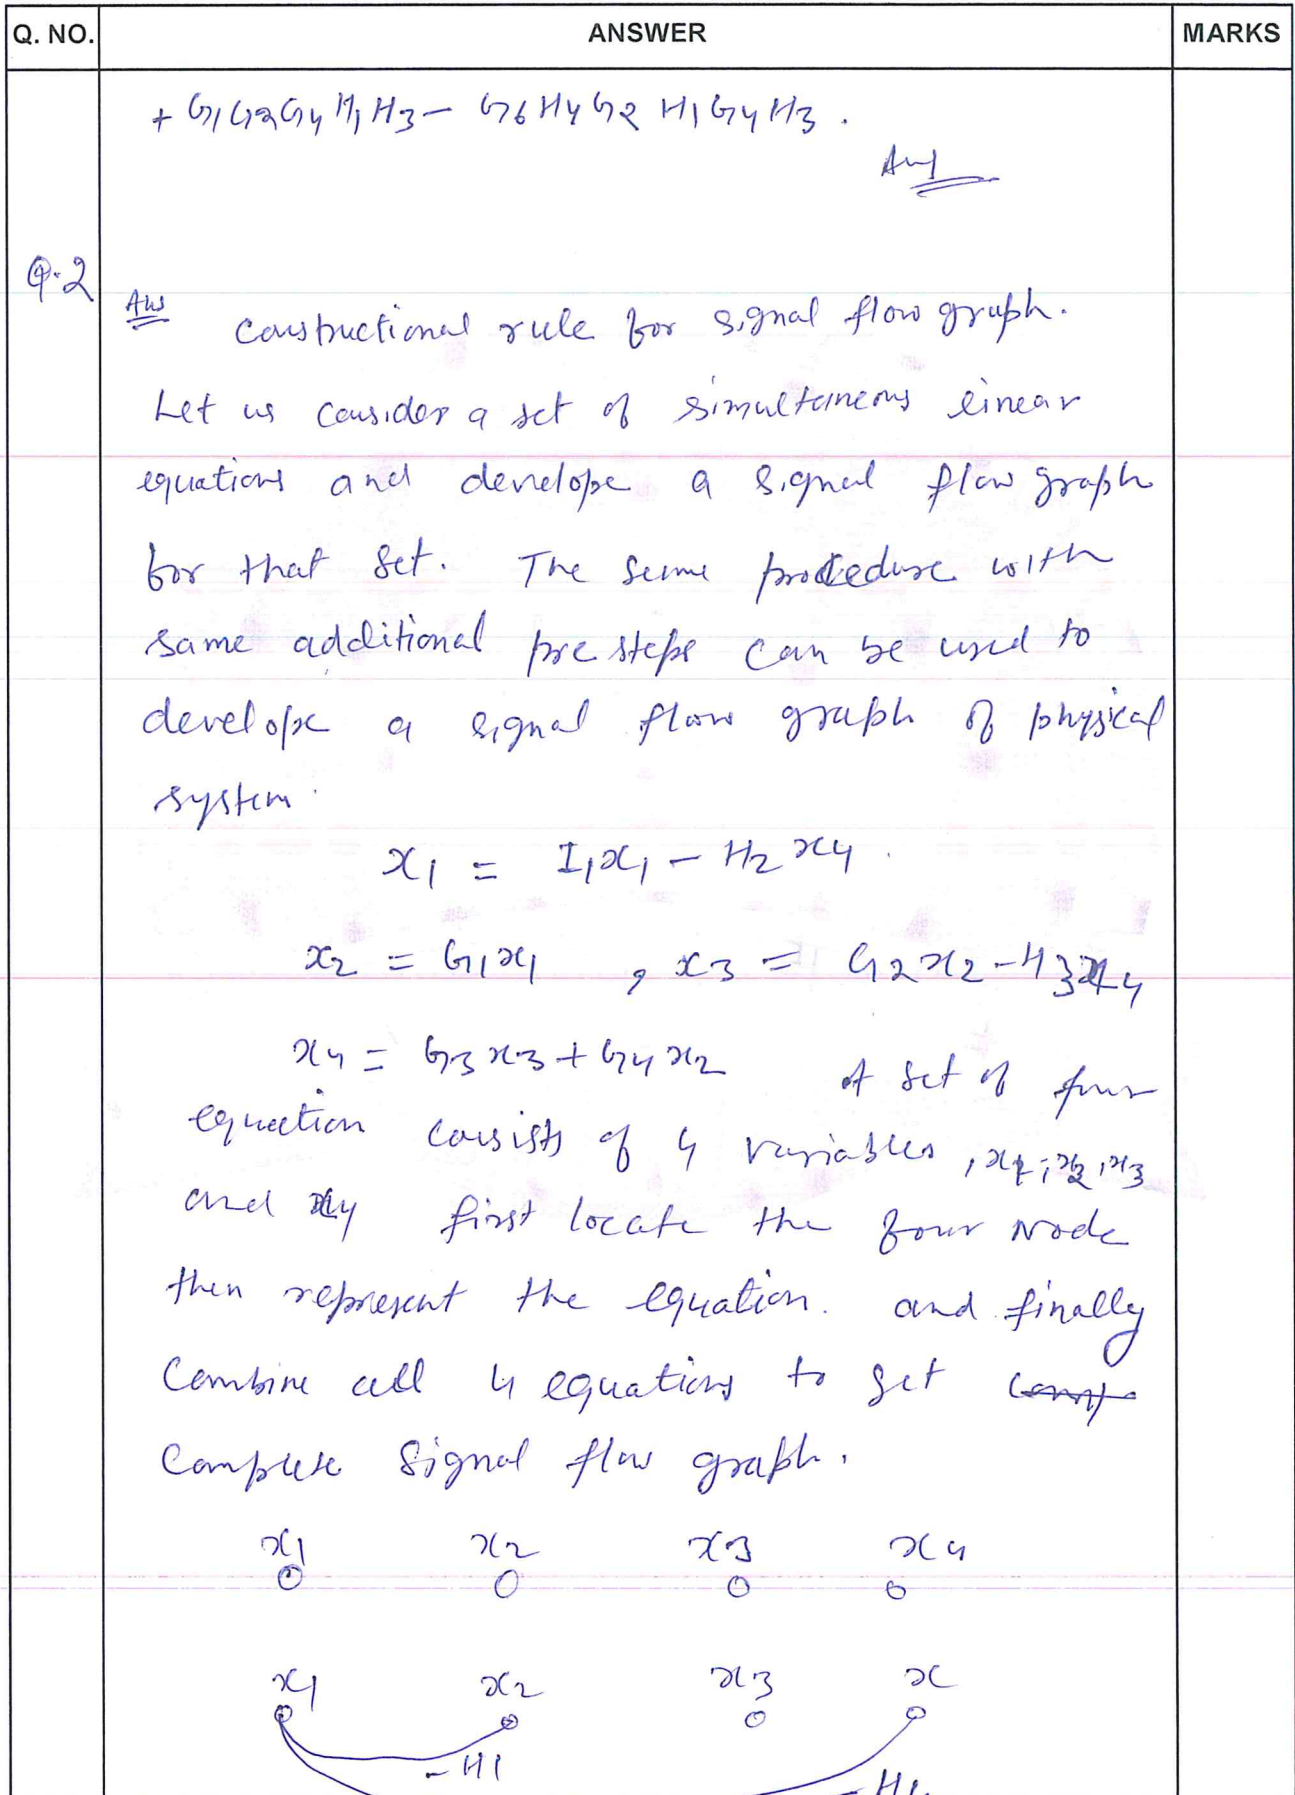 Q. NO. ANSWER MARKS
+ G1G2G4H1H3 - G6H4G2H1G4H3.
Ans
Q.2
Ans Constructional rule for signal flow graph.
Let us consider a set of simultaneous linear
equations and develope a signal flow graph
for that set. The same procedure with
same additional pre steps can be used to
develope a signal flow graph of physical
system.
x1 = I1x1 - H2x4.
x2 = G1x1 , x3 = G2x2 - H3x4
x4 = G3x3 + G4x2 A set of four
equation consists of 4 variables, x1, x2, x3
and x4 first locate the four Node
then represent the equation. and finally
Combine all 4 equations to get
Complete Signal flow graph.
x1 x2 x3 x4
x1 x2 x3 x
- H1